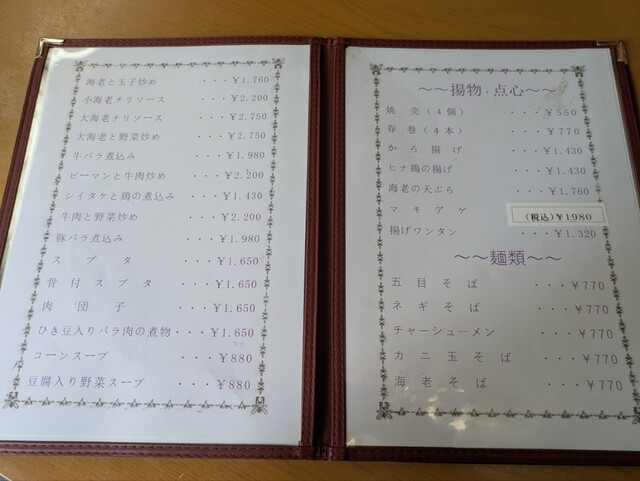 海老と玉子炒め ・・・¥1.760
小海老チリソース ・・・¥2.200
大海老チリソース ・・・¥2.750
大海老と野菜炒め ・・・¥2.750
牛バラ煮込み ・・・¥1.980
ピーマンと牛肉炒め ・・・¥2.200
シイタケと鶏の煮込み ・・・¥1.430
牛肉と野菜炒め ・・・¥2.200
豚バラ煮込み ・・・¥1.980
スブタ ・・・¥1.650
骨付スブタ ・・・¥1.650
肉団子 ・・・¥1.650
ひき豆入りバラ肉の煮物・・・¥1.650
コーンスープ ・・・¥880
豆腐入り野菜スープ ・・・¥880
~~揚物.点心~~
焼売(4個) ・・・¥550
春巻(4本) ・・・¥770
から揚げ ・・・¥1.430
ヒナ鶏の揚げ ・・・¥1.430
海老の天ぷら ・・・¥1.760
マキアゲ (税込)¥1980
揚げワンタン ・・・¥1.320
~~麺類~~
五目そば ・・・¥770
ネギそば ・・・¥770
チャーシューメン ・・・¥770
カニ玉そば ・・・¥770
海老そば ・・・¥770